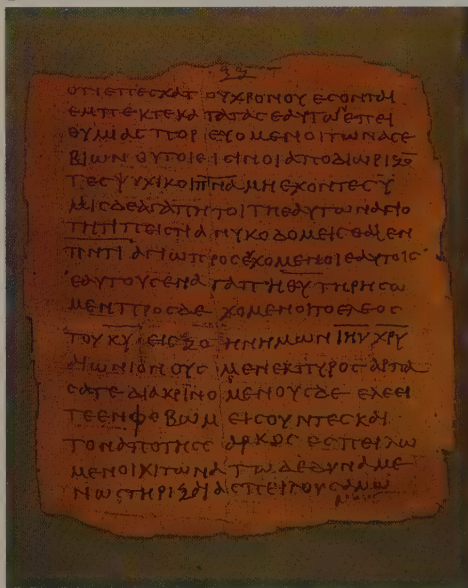 ΟΤΙΕΠΕΣΧΑΤ ΟΥΧΡΟΝΟΥ ΕΣΟΝΤΑΙ
ΕΜΠΕΚΤΕΚΑΤΑΤΑΣΕΑΥΤΩ̅ΕΠΕΙ
ΘΥΜΙΑΣΠΟΡΕΥΟΜΕΝΟΙΤΩΝΑΣΕ
ΒΙΩΝΟΥΤΟΙΕΙΣΙΝΟΙΑΠΟΔΙΩΡΙΖΟ̅
ΤΕΣΨΥΧΙΚΟΙΠ̅Ν̅Α̅ΜΗΕΧΟΝΤΕΣΫ
ΜΙΣΔΕΑΓΑΠΗΤΟΙΤΗΕΑΥΤΩΝΑΓΙΟ
ΤΗΤΙΠΕΙΣΤΙΑΝΥΚΟΔΟΜΕΙΣΘΑΙΕΝ
Π̅Ν̅Τ̅Ι̅ΑΓΙΩΠΡΟΣΕΧΟΜΕΝΟΙΕΑΥΤΟΙΣ
ΕΑΥΤΟΥΣΕΝΑΓΑΠΗΘΥΤΗΡΗΣΩ
ΜΕΝΠΡΟΣΔΕΧΟΜΕΝΟΙΤΟΕΛΕΟΣ
ΤΟΥΚ̅Υ̅ ΕΙΣΖΟ ΗΝΗΜΩΝΙ̅Η̅Υ̅Χ̅Ρ̅Υ̅
ΑΙΩΝΙΟΝΟΥΣΜΕΝΕΚΠΥΡΟΣΑΡΠΑ
ΣΑΤΕΔΙΑΚΡΙΝΟΜΕΝΟΥΣΔΕ ΕΛΕΕΙ
ΤΕΕΝΦΟΒΩ ΜΕΙΣΟΥΝΤΕΣΚΑΙ
ΤΟΝΑΠΟΤΗΣΣΑΡΚΟΣΕΣΠΕΙΛΩ
ΜΕΝΟΙΧΙΤΩΝΑΤΩΔΕΔΥΝΑΜΕ
ΝΩΣΤΗΡΙΞΑΙΑΣΠΕΙΛΟΥΣ